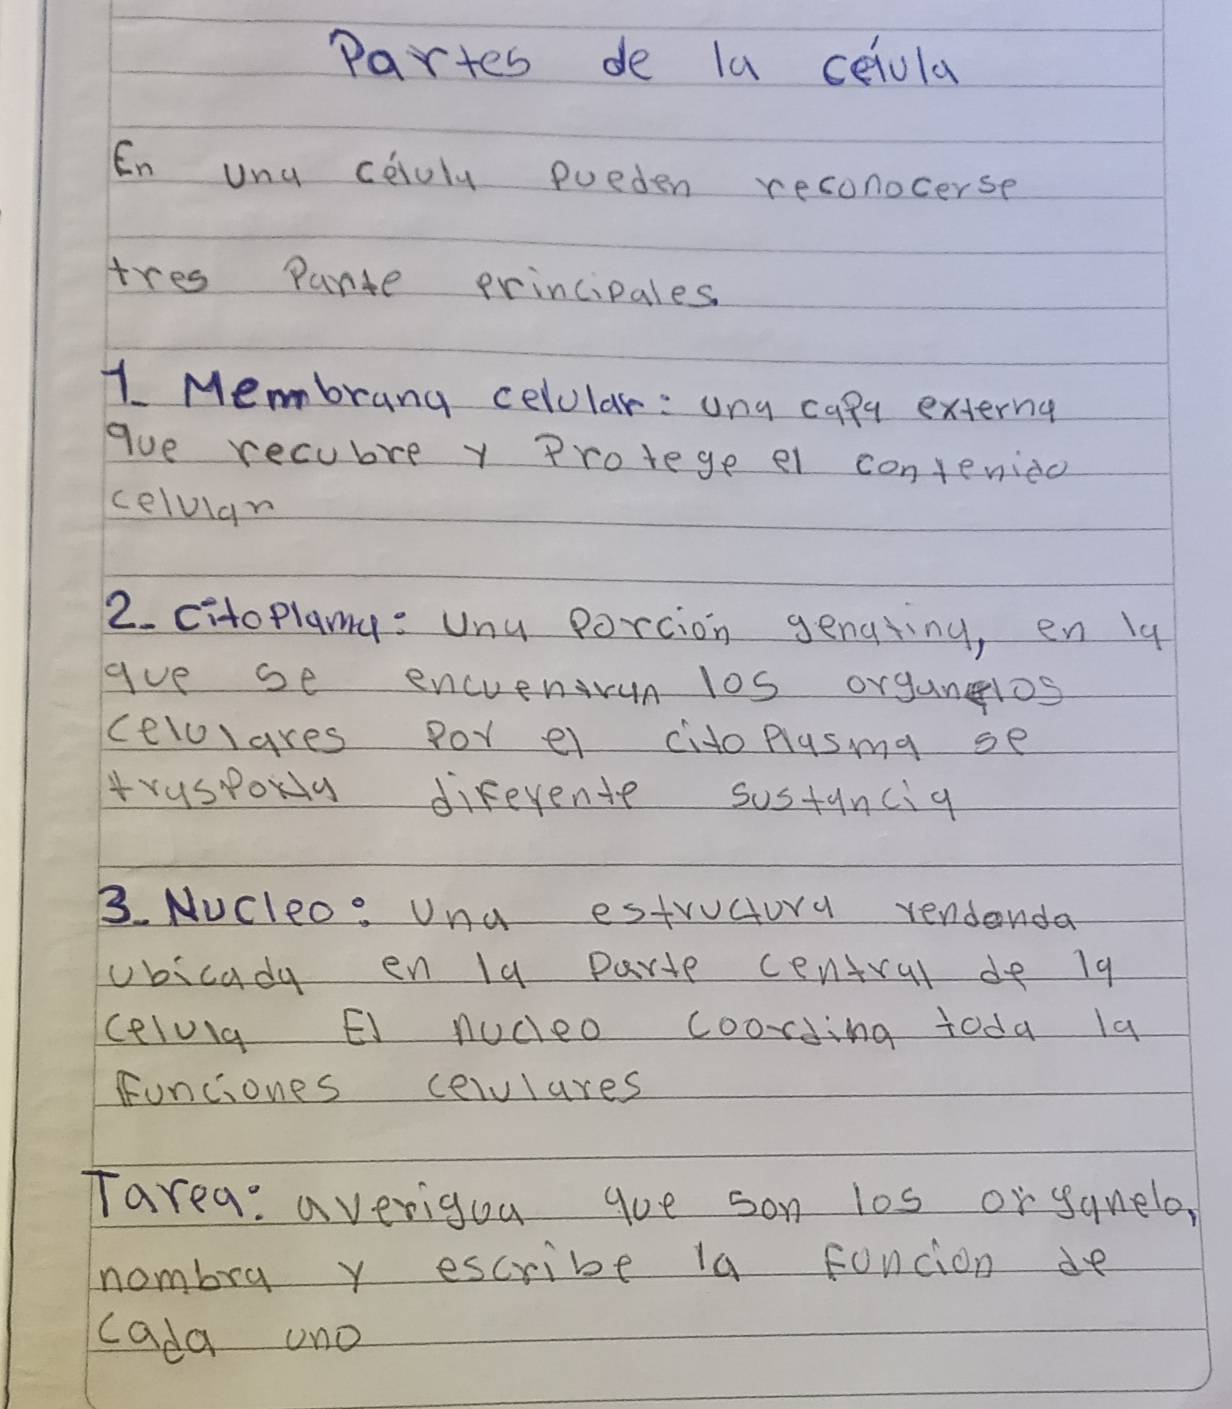 Partes de la célula
En una célula pueden reconocerse
tres Parte principales.
1. Membrana celular: una capa externa
que recubre y Protege el contenido
celular
2. Citoplama: una porción genatina, en la
que se encuentran los organelos
celulares por el citoplasma se
trasporta diferente sustancia
3. Nucleo: una estructura rendonda
ubicada en la parte central de la
celula El nucleo coordina toda la
funciones celulares
Tarea: averigua que son los organelo,
nombra y escribe la funcion de
cada uno